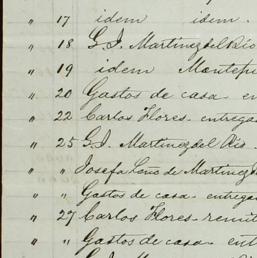 " 17 idem idem.
" 18 G. I. Martinez del Rio
" 19 idem
" 20 Gastos de casa en
" 22 Carlos Flores entrega
" 25 G. I. Martinez del Rio.
" " Josefa de Martinez
" Gastos de casa entrega
" 27 Carlos Flores remit
" " Gastos de casa ent